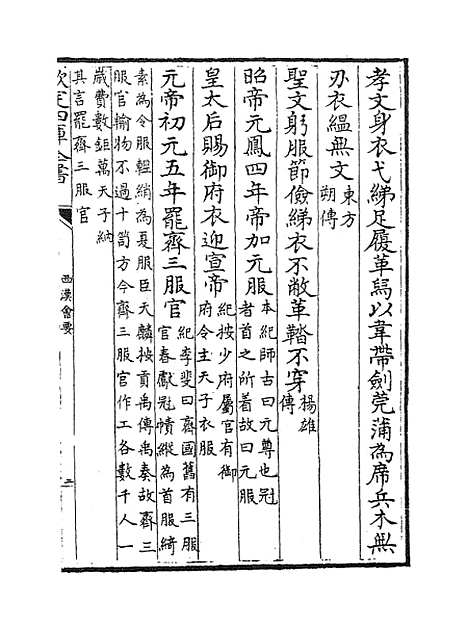 孝文身衣弋綈足履革舄以韋帶劍莞蒲為席兵木無
刃衣緼無文東方
朔傳
聖文躬服節儉綈衣不敝革鞜不穿楊雄
傳
昭帝元鳳四年帝加元服本紀師古曰元尊也冠
者首之所着故曰元服
皇太后賜御府衣迎宣帝紀按少府屬官有御
府令主天子衣服
元帝初元五年罷齊三服官紀李斐曰齊國舊有三服
官春獻冠幘縰為首服綺
素為冬服輕綃為夏服臣天麟按貢禹傳禹奏故齊三
服官輸物不過十笥方今齊三服官作工各數千人一
歲費數鉅萬天子納
其言罷齊三服官
欽定四庫全書
西漢會要
三